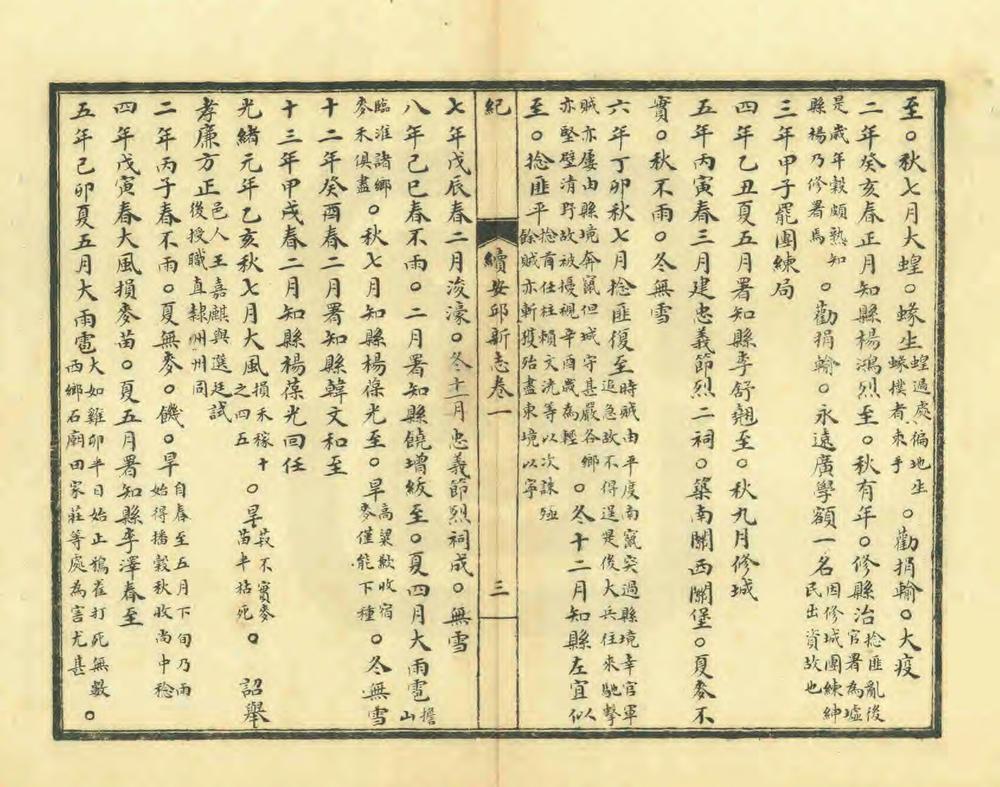 至○秋七月大蝗○蝝生蝗過處徧地生蝝撲者束手○勸捐輸○大疫
二年癸亥春正月知縣楊鴻烈至○秋有年○修縣治捻匪亂後官署為墟
是歲年穀頗熟知縣楊乃修署焉○勸捐輸○永遠廣學額一名因修城團練紳民出資故也
三年甲子罷團練局
四年乙丑夏五月署知縣李舒翹至○秋九月修城
五年丙寅春三月建忠義節烈二祠○築南關西關堡○夏麥不
實○秋不雨○冬無雪
六年丁卯秋七月捻匪復至時賊由平度南竄突過縣境幸官軍追急故不得逞是後大兵往來馳擊
賊亦屢由縣境奔竄但城守甚嚴各鄉亦堅壁清野故被擾視辛酉歲為輕○冬十二月知縣左宜似
至○捻匪平捻酋任柱賴文洸等以次誅殛餘賊亦斬獲殆盡東境以寧
紀 續安邱新志卷一 三
七年戊辰春二月浚濠○冬十一月忠義節烈祠成○無雪
八年己巳春不雨○二月署知縣饒增紱至○夏四月大雨雹擔山
臨淮諸鄉麥禾俱盡○秋七月知縣楊葆光至○旱高粱歉收宿麥僅能下種○冬無雪
十二年癸酉春二月署知縣韓文和至
十三年甲戌春二月知縣楊葆光回任
光緒元年乙亥秋七月大風損禾稼十之四五○旱菽不實麥苗半枯死○詔舉
孝廉方正邑人王嘉麒與選廷試後授職直隸州州同
二年丙子春不雨○夏無麥○饑○旱自春至五月下旬乃雨始得播穀秋收尚中稔
四年戊寅春大風損麥苗○夏五月署知縣李澤春至
五年己卯夏五月大雨雹大如雞卵半日始止鴉雀打死無數西鄉石廟田家莊等處為害尤甚○